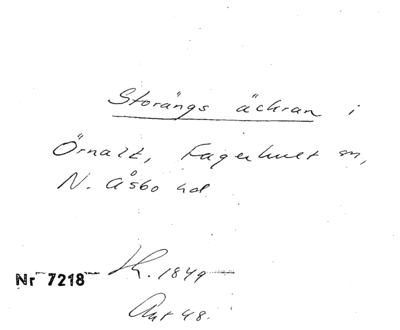 Storängs äckran i
Örnalt, Fagerhult sn,
N. Åsbo hd
Nr 7218
1849
Akt 48.